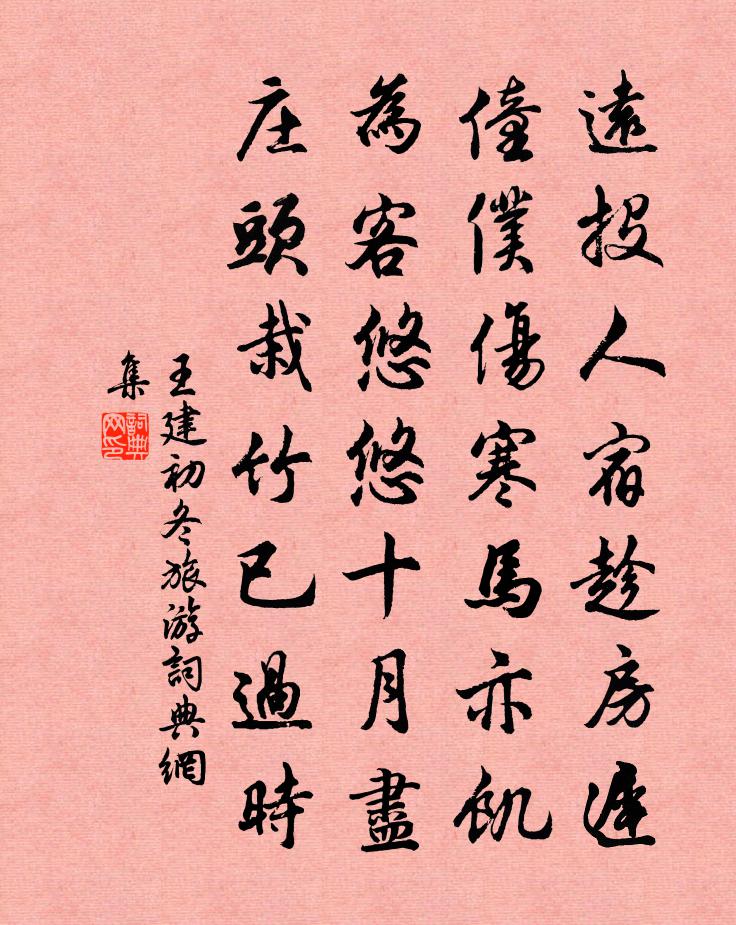 遠投人宿趁房遲
僮僕傷寒馬亦飢
為客悠悠十月盡
庄頭栽竹已過時
王建初冬旅游詞典網
集
詞典
网印